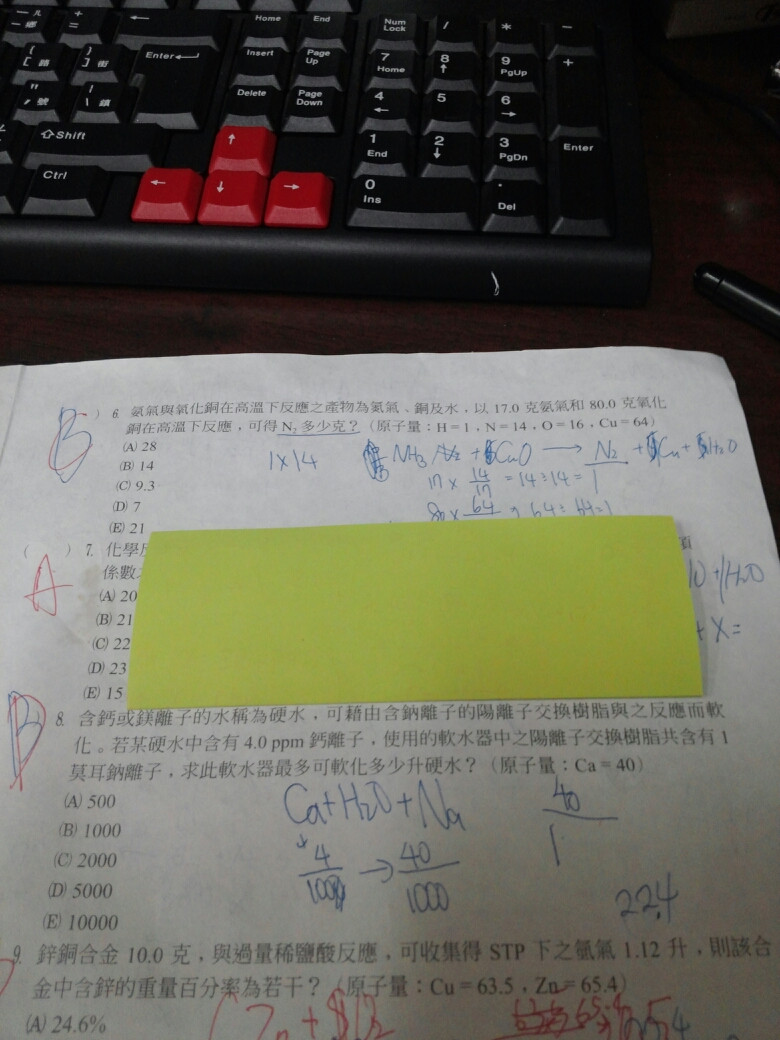 Home End
Num Lock / * −
Enter Insert Page Up
7 Home 8 9 PgUp +
Delete Page Down
4 5 6
Shift
1 End 2 3 PgDn Enter
Ctrl
0 Ins . Del
B ) 6. 氨氣與氧化銅在高溫下反應之產物為氮氣、銅及水，以 17.0 克氨氣和 80.0 克氧化
銅在高溫下反應，可得 N₂ 多少克？（原子量：H = 1，N = 14，O = 16，Cu = 64）
(A) 28
(B) 14
1×14
(C) 9.3
17 × 14/17 = 14÷14 = 1
(D) 7
(E) 21
A ( ) 7. 化學
係數
(A) 20
(B) 21
+ X =
(C) 22
(D) 23
(E) 15
8. 含鈣或鎂離子的水稱為硬水，可藉由含鈉離子的陽離子交換樹脂與之反應而軟
化。若某硬水中含有 4.0 ppm 鈣離子，使用的軟水器中之陽離子交換樹脂共含有 1
莫耳鈉離子，求此軟水器最多可軟化多少升硬水？（原子量：Ca = 40）
(A) 500
Ca+H2O+Na
40
(B) 1000
(C) 2000
→ 40/1000
(D) 5000
22.4
(E) 10000
9. 鋅銅合金 10.0 克，與過量稀鹽酸反應，可收集得 STP 下之氫氣 1.12 升，則該合
金中含鋅的重量百分率為若干？（原子量：Cu = 63.5，Zn = 65.4）
(A) 24.6%